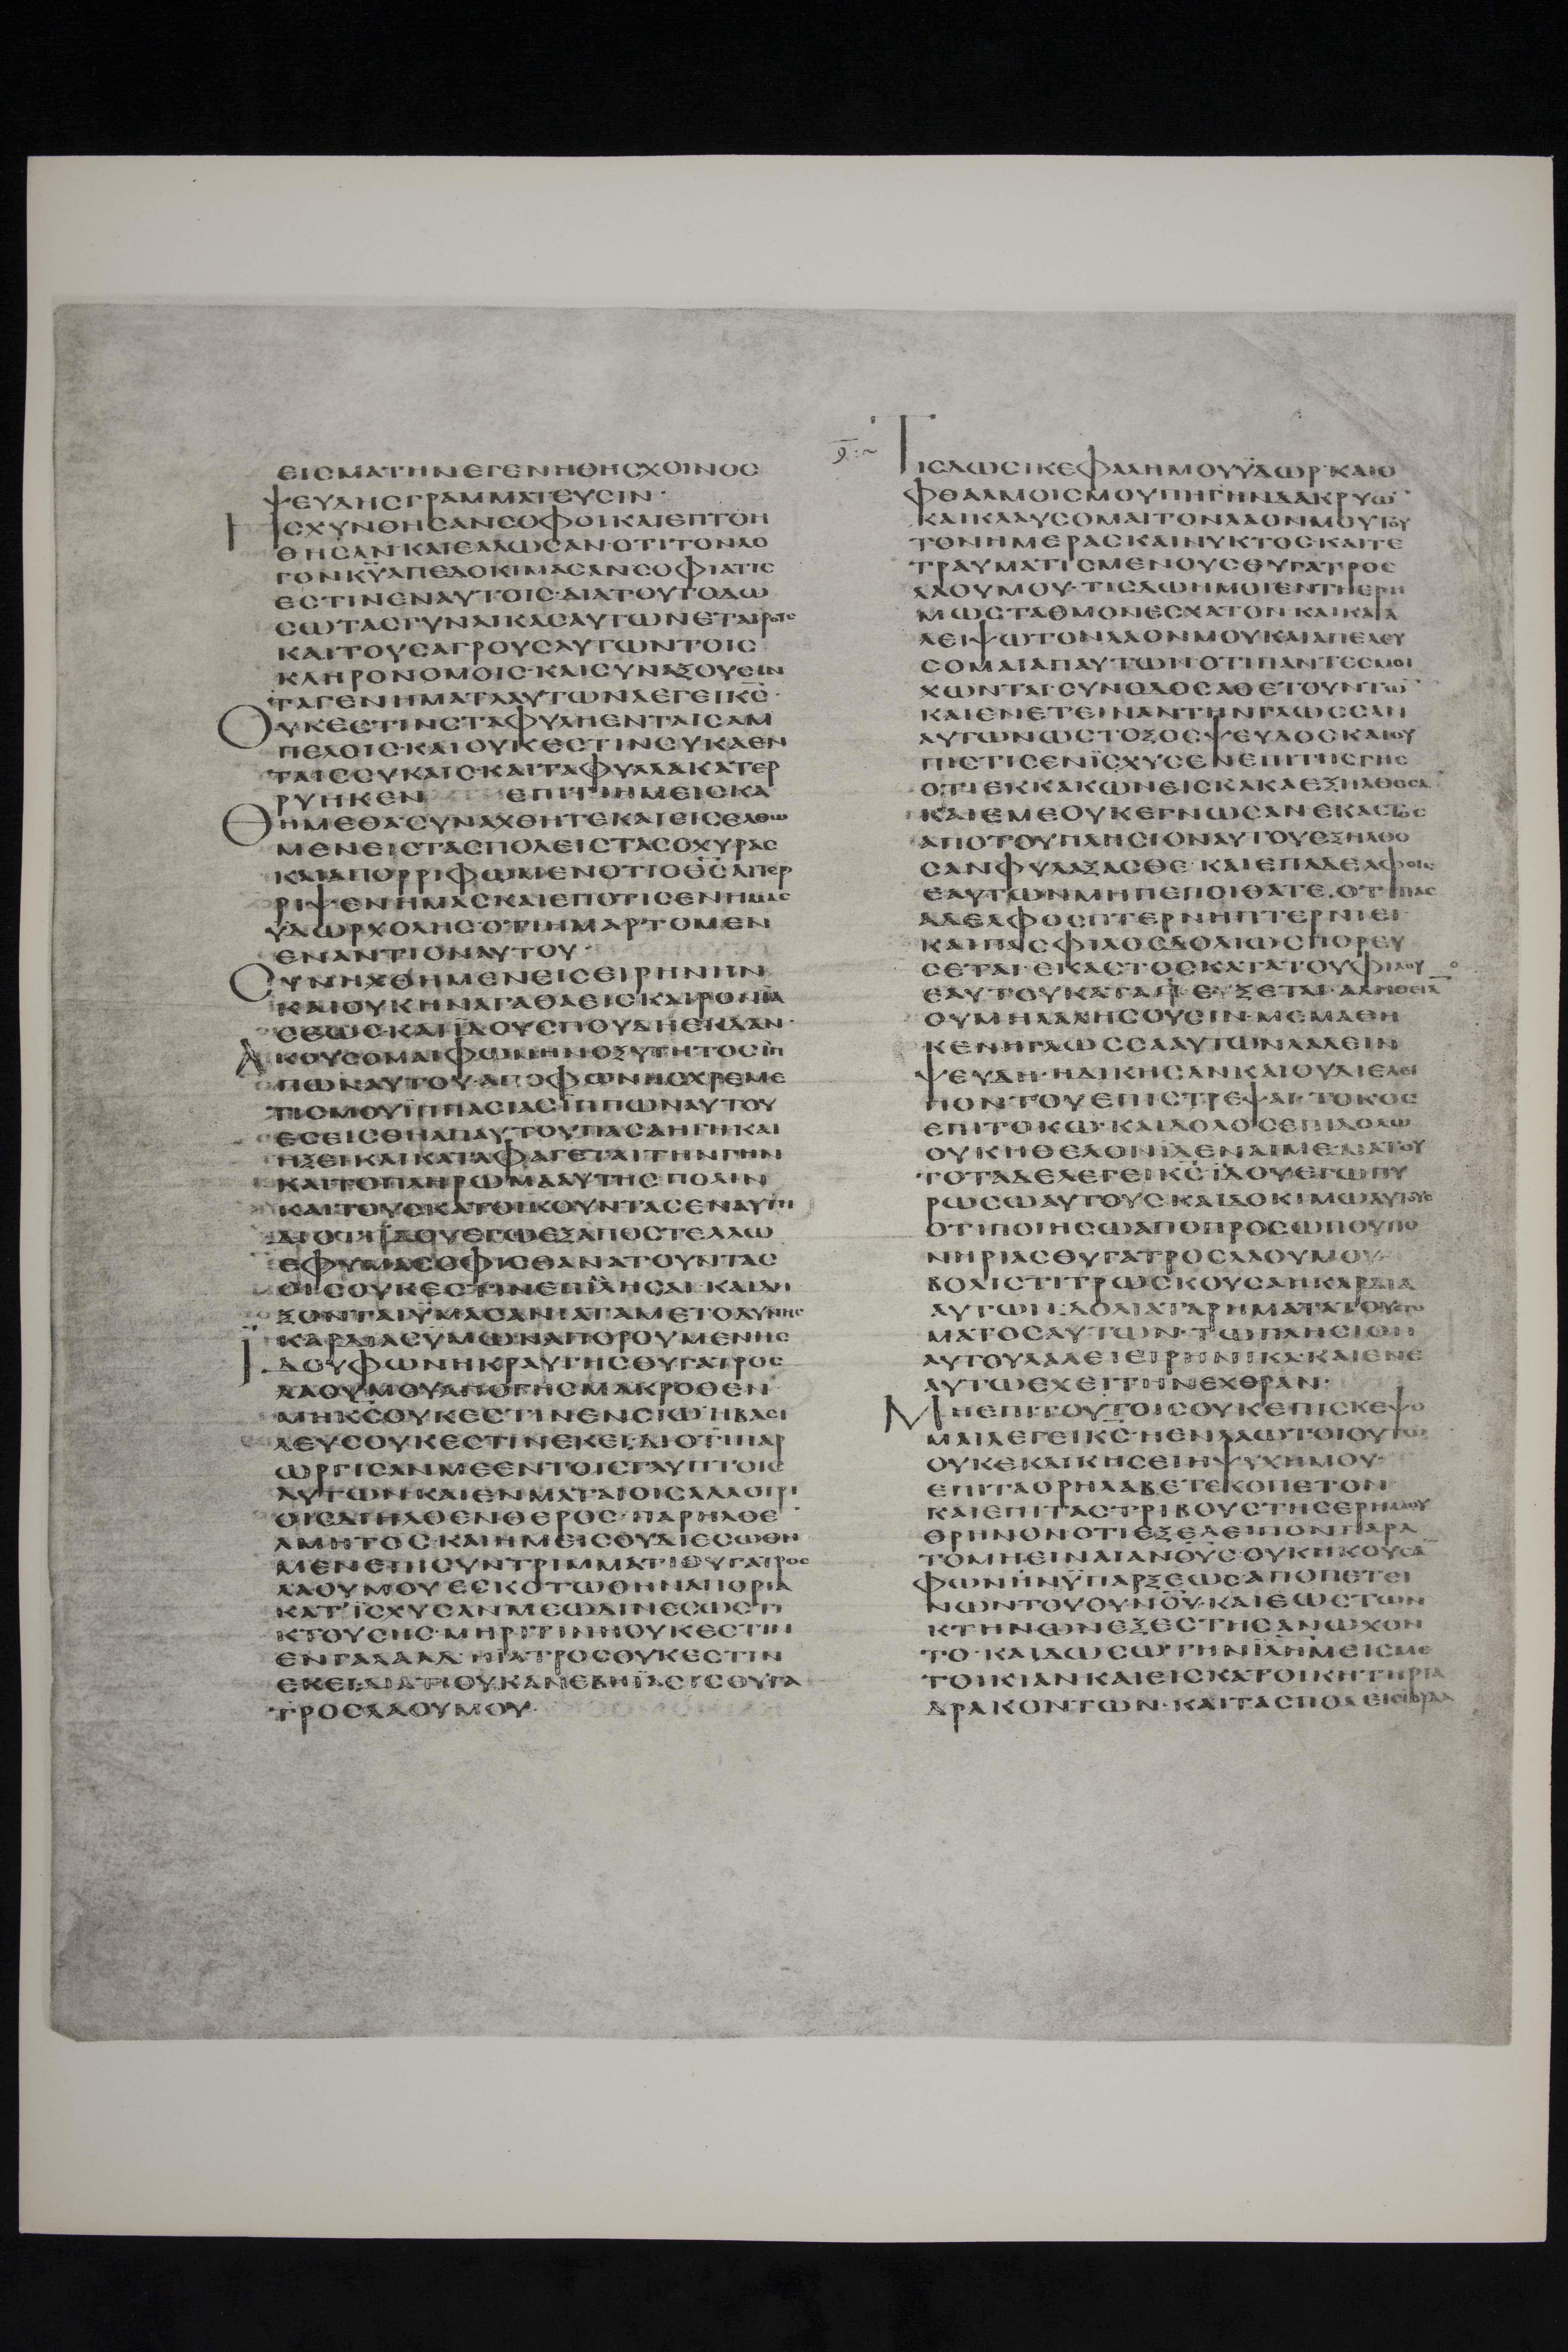 ΕΙΣΜΑΤΗΝΕΓΕΝΗΘΗΣΧΟΙΝΟΣ
ΨΕΥΔΗΣΓΡΑΜΜΑΤΕΥΣΙΝ·
ΗΣΧΥΝΘΗΣΑΝΣΟΦΟΙΚΑΙΕΠΤΟΗ
ΘΗΣΑΝΚΑΙΕΑΛΩΣΑΝ·ΟΤΙΤΟΝΛΟ
ΓΟΝΚΥΑΠΕΔΟΚΙΜΑΣΑΝΣΟΦΙΑΤΙΣ
ΕΣΤΙΝΕΝΑΥΤΟΙΣ·ΔΙΑΤΟΥΤΟΔΩ
ΣΩΤΑΣΓΥΝΑΙΚΑΣΑΥΤΩΝΕΤΑΙΡΟΙΣ
ΚΑΙΤΟΥΣΑΓΡΟΥΣΑΥΤΩΝΤΟΙΣ
ΚΛΗΡΟΝΟΜΟΙΣ·ΚΑΙΣΥΝΑΞΟΥΣΙΝ
ΤΑΓΕΝΗΜΑΤΑΑΥΤΩΝΛΕΓΕΙΚΣ·
ΟΥΚΕΣΤΙΝΣΤΑΦΥΛΗΕΝΤΑΙΣΑΜ
ΠΕΛΟΙΣ·ΚΑΙΟΥΚΕΣΤΙΝΣΥΚΑΕΝ
ΤΑΙΣΣΥΚΑΙΣ·ΚΑΙΤΑΦΥΛΛΑΚΑΤΕΡ
ΡΥΗΚΕΝ ΕΠΙΤΙΗΜΕΙΣΚΑ
ΘΗΜΕΘΑ·ΣΥΝΑΧΘΗΤΕΚΑΙΕΙΣΕΛΘΩ
ΜΕΝΕΙΣΤΑΣΠΟΛΕΙΣΤΑΣΟΧΥΡΑΣ
ΚΑΙΑΠΟΡΡΙΦΩΜΕΝΟΤΙΟΘΣΑΠΕΡ
ΡΙΨΕΝΗΜΑΣΚΑΙΕΠΟΤΙΣΕΝΗΜΑΣ
ΥΔΩΡΧΟΛΗΣ·ΟΤΙΗΜΑΡΤΟΜΕΝ
ΕΝΑΝΤΙΟΝΑΥΤΟΥ·
ΣΥΝΗΧΘΗΜΕΝΕΙΣΕΙΡΗΝΗΝ
ΚΑΙΟΥΚΗΝΑΓΑΘΑΕΙΣΚΑΙΡΟΝΙΑ
ΣΕΩΣ·ΚΑΙΪΔΟΥΣΠΟΥΔΗΕΚΔΑΝ·
ΑΚΟΥΣΟΜΑΙΦΩΝΗΝΟΞΥΤΗΤΟΣΙΠ
ΠΩΝΑΥΤΟΥ·ΑΠΟΦΩΝΗΣΧΡΕΜΕ
ΤΙΣΜΟΥΪΠΠΑΣΙΑΣΪΠΠΩΝΑΥΤΟΥ
ΕΣΕΙΣΘΗΑΠΑΥΤΟΥΠΑΣΑΗΓΗΚΑΙ
ΗΞΕΙΚΑΙΚΑΤΑΦΑΓΕΤΑΙΤΗΝΓΗΝ
ΚΑΙΤΟΠΛΗΡΩΜΑΑΥΤΗΣΠΟΛΙΝ
ΚΑΙΤΟΥΣΚΑΤΟΙΚΟΥΝΤΑΣΕΝΑΥΤΗ
ΔΙΟΤΙΪΔΟΥΕΓΩΕΞΑΠΟΣΤΕΛΛΩ
ΕΦΥΜΑΣΟΦΙΣΘΑΝΑΤΟΥΝΤΑΣ
ΟΙΣΟΥΚΕΣΤΙΝΕΠΪΑΗΣΑΙ·ΚΑΙΔΗ
ΞΟΝΤΑΙΥΜΑΣΑΝΙΑΤΑΜΕΤΟΔΥΝΗΣ
ΚΑΡΔΙΑΣΥΜΩΝΑΠΟΡΟΥΜΕΝΗΣ
ΪΔΟΥΦΩΝΗΚΡΑΥΓΗΣΘΥΓΑΤΡΟΣ
ΛΑΟΥΜΟΥΑΠΟΓΗΣΜΑΚΡΟΘΕΝ
ΜΗΚΣΟΥΚΕΣΤΙΝΕΝΣΙΩΗΒΑΣΙ
ΛΕΥΣΟΥΚΕΣΤΙΝΕΚΕΙ·ΔΙΟΤΙΠΑΡ
ΩΡΓΙΣΑΝΜΕΕΝΤΟΙΣΓΛΥΠΤΟΙΣ
ΑΥΤΩΝΚΑΙΕΝΜΑΤΑΙΟΙΣΑΛΛΟΤΡΙ
ΟΙΣΔΙΗΛΘΕΝΘΕΡΟΣ·ΠΑΡΗΛΘΕ
ΑΜΗΤΟΣ·ΚΑΙΗΜΕΙΣΟΥΔΙΕΣΩΘΗ
ΜΕΝΕΠΙΣΥΝΤΡΙΜΜΑΤΙΘΥΓΑΤΡΟΣ
ΛΑΟΥΜΟΥΕΣΚΟΤΩΘΗΝΑΠΟΡΙΑ
ΚΑΤΪΣΧΥΣΑΝΜΕΩΔΙΝΕΣΩΣΤΙ
ΚΤΟΥΣΗΣ·ΜΗΡΙΤΙΝΗΟΥΚΕΣΤΙΝ
ΕΝΓΑΛΑΑΔ·ΗΙΑΤΡΟΣΟΥΚΕΣΤΙΝ
ΕΚΕΙ·ΔΙΑΤΙΟΥΚΑΝΕΒΗΪΑΣΙΣΘΥΓΑ
ΤΡΟΣΛΑΟΥΜΟΥ·
ΤΙΣΔΩΣΙΚΕΦΑΛΗΜΟΥΫΔΩΡ·ΚΑΙΟ
ΦΘΑΛΜΟΙΣΜΟΥΠΗΓΗΝΔΑΚΡΥΩ
ΚΑΙΚΛΑΥΣΟΜΑΙΤΟΝΛΑΟΝΜΟΥΤΟΥ
ΤΟΝΗΜΕΡΑΣΚΑΙΝΥΚΤΟΣ·ΚΑΙΤΕ
ΤΡΑΥΜΑΤΙΣΜΕΝΟΥΣΘΥΓΑΤΡΟΣ
ΛΑΟΥΜΟΥ·ΤΙΣΔΩΗΜΟΙΕΝΤΗΕΡΗ
ΜΩΣΤΑΘΜΟΝΕΣΧΑΤΟΝΚΑΙΚΑΤΑ
ΛΕΙΨΩΤΟΝΛΑΟΝΜΟΥΚΑΙΑΠΕΛΕΥ
ΣΟΜΑΙΑΠΑΥΤΩΝ·ΟΤΙΠΑΝΤΕΣΜΟΙ
ΧΩΝΤΑΙ·ΣΥΝΟΔΟΣΑΘΕΤΟΥΝΤΩ
ΚΑΙΕΝΕΤΕΙΝΑΝΤΗΝΓΛΩΣΣΑΝ
ΑΥΤΩΝΩΣΤΟΞΟΣΨΕΥΔΟΣΚΑΙΟΥ
ΠΙΣΤΙΣΕΝΪΣΧΥΣΕΝΕΠΙΤΗΣΓΗΣ
ΟΤΙΕΚΚΑΚΩΝΕΙΣΚΑΚΑΕΞΗΛΘΟΣΑ
ΚΑΙΕΜΕΟΥΚΕΓΝΩΣΑΝΕΚΑΣΤΟΣ
ΑΠΟΤΟΥΠΛΗΣΙΟΝΑΥΤΟΥΕΞΗΛΘΟ
ΣΑΝΦΥΛΑΞΑΣΘΕ·ΚΑΙΕΠΑΔΕΛΦΟΙΣ
ΕΑΥΤΩΝΜΗΠΕΠΟΙΘΑΤΕ·ΟΤΙΠΑΣ
ΑΔΕΛΦΟΣΠΤΕΡΝΗΠΤΕΡΝΙΕΙ·
ΚΑΙΠΑΣΦΙΛΟΣΔΟΛΙΩΣΠΟΡΕΥ
ΣΕΤΑΙ·ΕΚΑΣΤΟΣΚΑΤΑΤΟΥΦΙΛΟΥ
ΕΑΥΤΟΥΚΑΤΑΠΕΥΞΕΤΑΙ·ΑΛΗΘΕΙΑ
ΟΥΜΗΛΑΛΗΣΟΥΣΙΝ·ΜΕΜΑΘΗ
ΚΕΝΗΓΛΩΣΣΑΑΥΤΩΝΛΑΛΕΙΝ
ΨΕΥΔΗ·ΗΔΙΚΗΣΑΝΚΑΙΟΥΔΙΕΛΕΙ
ΠΟΝΤΟΥΕΠΙΣΤΡΕΨΑΙ·ΤΟΚΟΣ
ΕΠΙΤΟΚΩ·ΚΑΙΔΟΛΟΣΕΠΙΔΟΛΩ
ΟΥΚΗΘΕΛΟΝΪΔΕΝΑΙΜΕ·ΔΙΑΤΟΥ
ΤΟΤΑΔΕΛΕΓΕΙΚΣΪΔΟΥΕΓΩΠΥ
ΡΩΣΩΑΥΤΟΥΣΚΑΙΔΟΚΙΜΩΑΥΤΟΥΣ
ΟΤΙΠΟΙΗΣΩΑΠΟΠΡΟΣΩΠΟΥΠΟ
ΝΗΡΙΑΣΘΥΓΑΤΡΟΣΛΑΟΥΜΟΥ
ΒΟΛΙΣΤΙΤΡΩΣΚΟΥΣΑΗΚΑΡΔΙΑ
ΑΥΤΩΝ·ΔΟΛΙΑΤΑΡΗΜΑΤΑΤΟΥΣΤΟ
ΜΑΤΟΣΑΥΤΩΝ·ΤΩΠΛΗΣΙΟΝ
ΑΥΤΟΥΛΑΛΕΙΕΙΡΗΝΙΚΑ·ΚΑΙΕΝΕ
ΑΥΤΩΕΧΕΙΤΗΝΕΧΘΡΑΝ·
ΜΗΕΠΙΤΟΥΤΟΙΣΟΥΚΕΠΙΣΚΕΨΟ
ΜΑΙΛΕΓΕΙΚΣ·ΗΕΝΛΑΩΤΟΙΟΥΤΩ
ΟΥΚΕΚΔΙΚΗΣΕΙΗΨΥΧΗΜΟΥ·
ΕΠΙΤΑΟΡΗΛΑΒΕΤΕΚΟΠΕΤΟΝ
ΚΑΙΕΠΙΤΑΣΤΡΙΒΟΥΣΤΗΣΕΡΗΜΟΥ
ΘΡΗΝΟΝΟΤΙΕΞΕΛΕΙΠΟΝΠΑΡΑ
ΤΟΜΗΕΙΝΑΙΑΝΟΥΣ·ΟΥΚΗΚΟΥΣΑ
ΦΩΝΗΝΫΠΑΡΞΕΩΣΑΠΟΠΕΤΕΙ
ΝΩΝΤΟΥΟΥΝΟΥ·ΚΑΙΕΩΣΤΩΝ
ΚΤΗΝΩΝΕΞΕΣΤΗΣΑΝΩΧΟΝ
ΤΟ·ΚΑΙΔΩΣΩΤΗΝΪΛΗΜΕΙΣΜΕ
ΤΟΙΚΙΑΝΚΑΙΕΙΣΚΑΤΟΙΚΗΤΗΡΙΑ
ΔΡΑΚΟΝΤΩΝ·ΚΑΙΤΑΣΠΟΛΕΙΣΙΟΥΔΑ